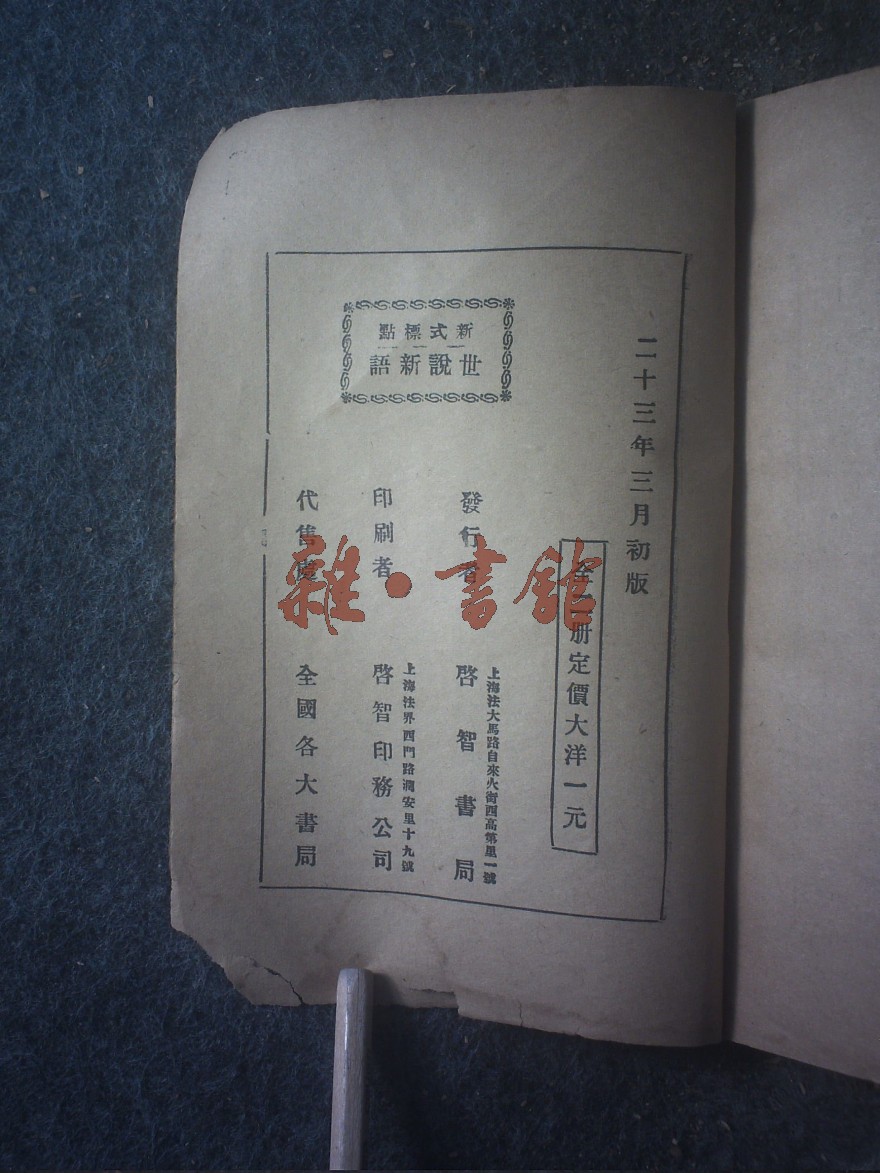 二十三年三月初版
全二册定價大洋一元
新式標點
世說新語
發行者
上海法大馬路自來火街西高第里一號
啓智書局
印刷者
上海法界西門路潤安里十九號
啓智印務公司
代售處
全國各大書局
雜·書館